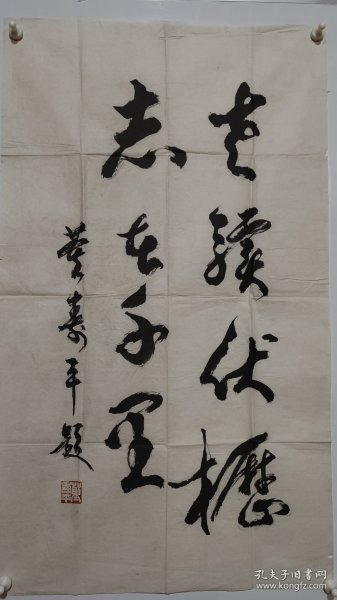 老骥伏枥
志在千里
董寿平题
孔夫子旧书网